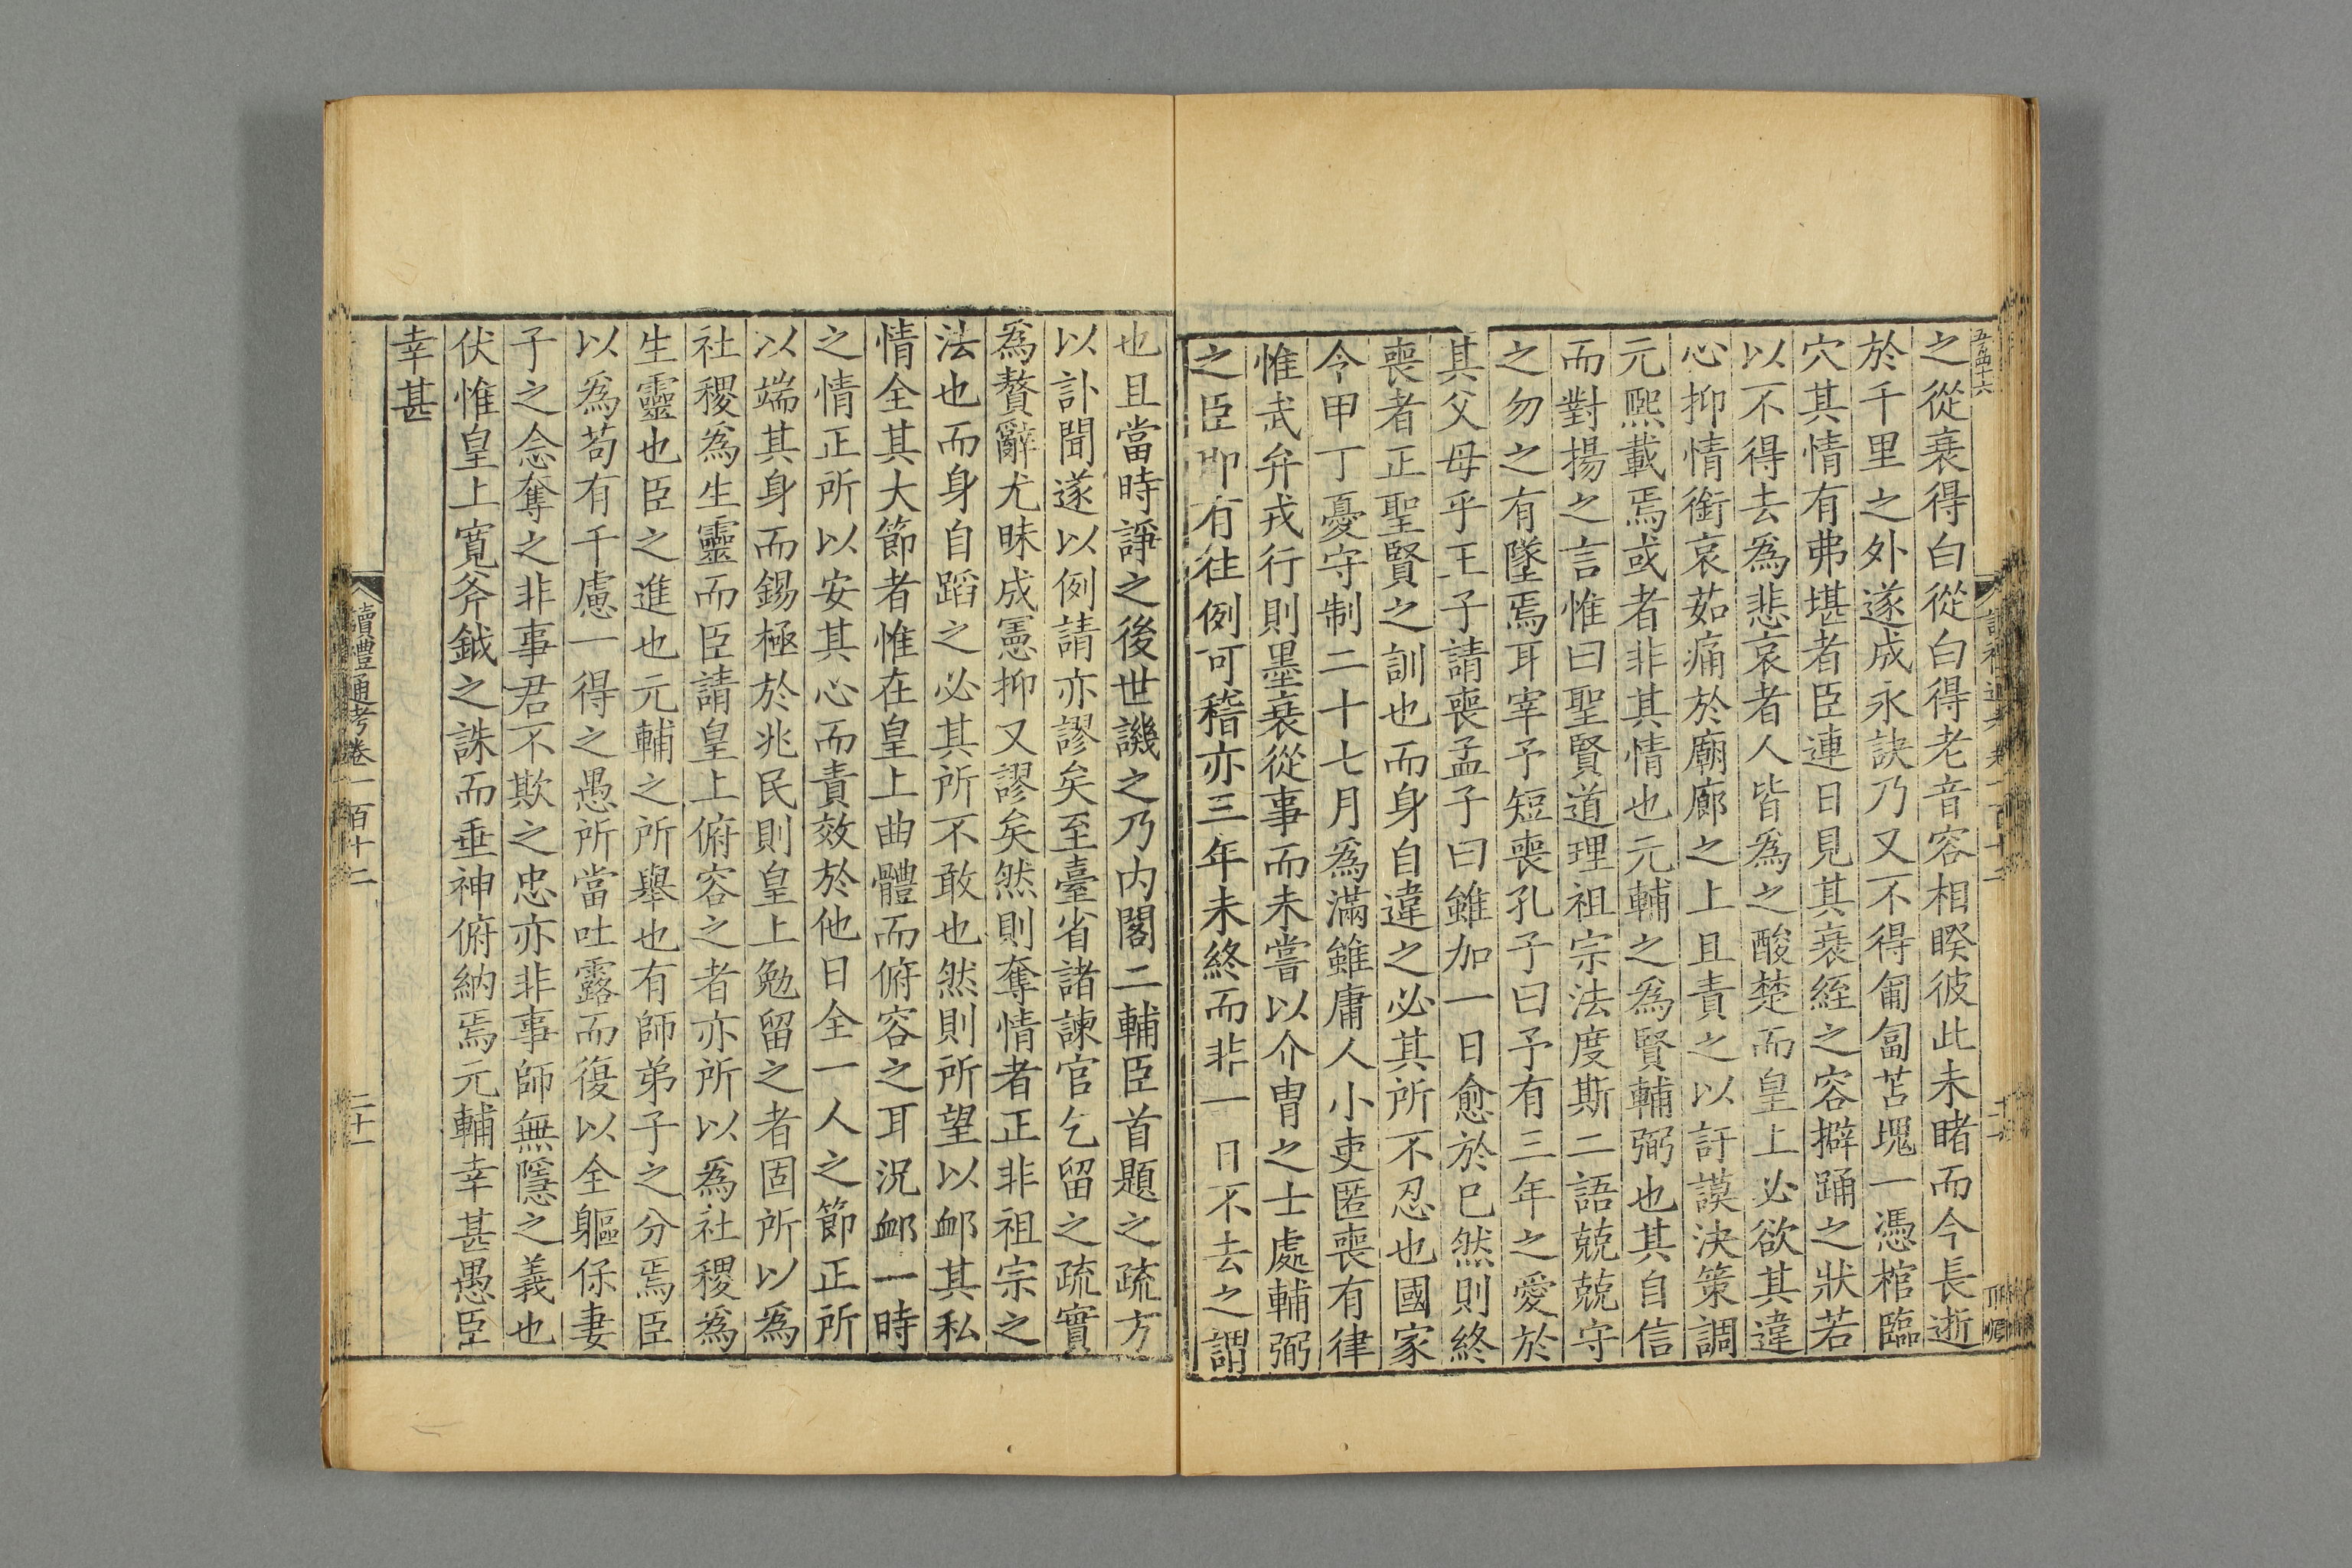 之從衰得白從白得老音容相暌彼此未睹而今長逝
於千里之外遂成永訣乃又不得匍匐苫塊一憑棺臨
穴其情有弗堪者臣連日見其衰絰之容擗踊之狀若
以不得去為悲哀者人皆為之酸楚而皇上必欲其違
心抑情銜哀茹痛於廟廊之上且責之以訏謨決策調
元熙載焉或者非其情也元輔之為賢輔弼也其自信
而對揚之言惟曰聖賢道理祖宗法度斯二語兢兢守
之勿之有墜焉耳宰予短喪孔子曰予有三年之愛於
其父母乎王子請喪孟子曰雖加一日愈於已然則終
喪者正聖賢之訓也而身自違之必其所不忍也國家
令甲丁憂守制二十七月為滿雖庸人小吏匿喪有律
惟武弁戎行則墨衰從事而未嘗以介冑之士處輔弼
之臣即有往例可稽亦三年未終而非一日不去之謂
也且當時諍之後世譏之乃内閣二輔臣首題之疏方
以訃聞遂以例請亦謬矣至臺省諸諫官乞留之疏實
為贅辭尤昧成憲抑又謬矣然則奪情者正非祖宗之
法也而身自蹈之必其所不敢也然則所望以䘏其私
情全其大節者惟在皇上曲體而俯容之耳況䘏一時
之情正所以安其心而責效於他日全一人之節正所
以端其身而錫極於兆民則皇上勉留之者固所以為
社稷為生靈而臣請皇上俯容之者亦所以為社稷為
生靈也臣之進也元輔之所舉也有師弟子之分焉臣
以為苟有千慮一得之愚所當吐露而復以全軀保妻
子之念奪之非事君不欺之忠亦非事師無隱之義也
伏惟皇上寬斧鉞之誅而垂神俯納焉元輔幸甚愚臣
幸甚
讀禮通考卷一百十二
二十一